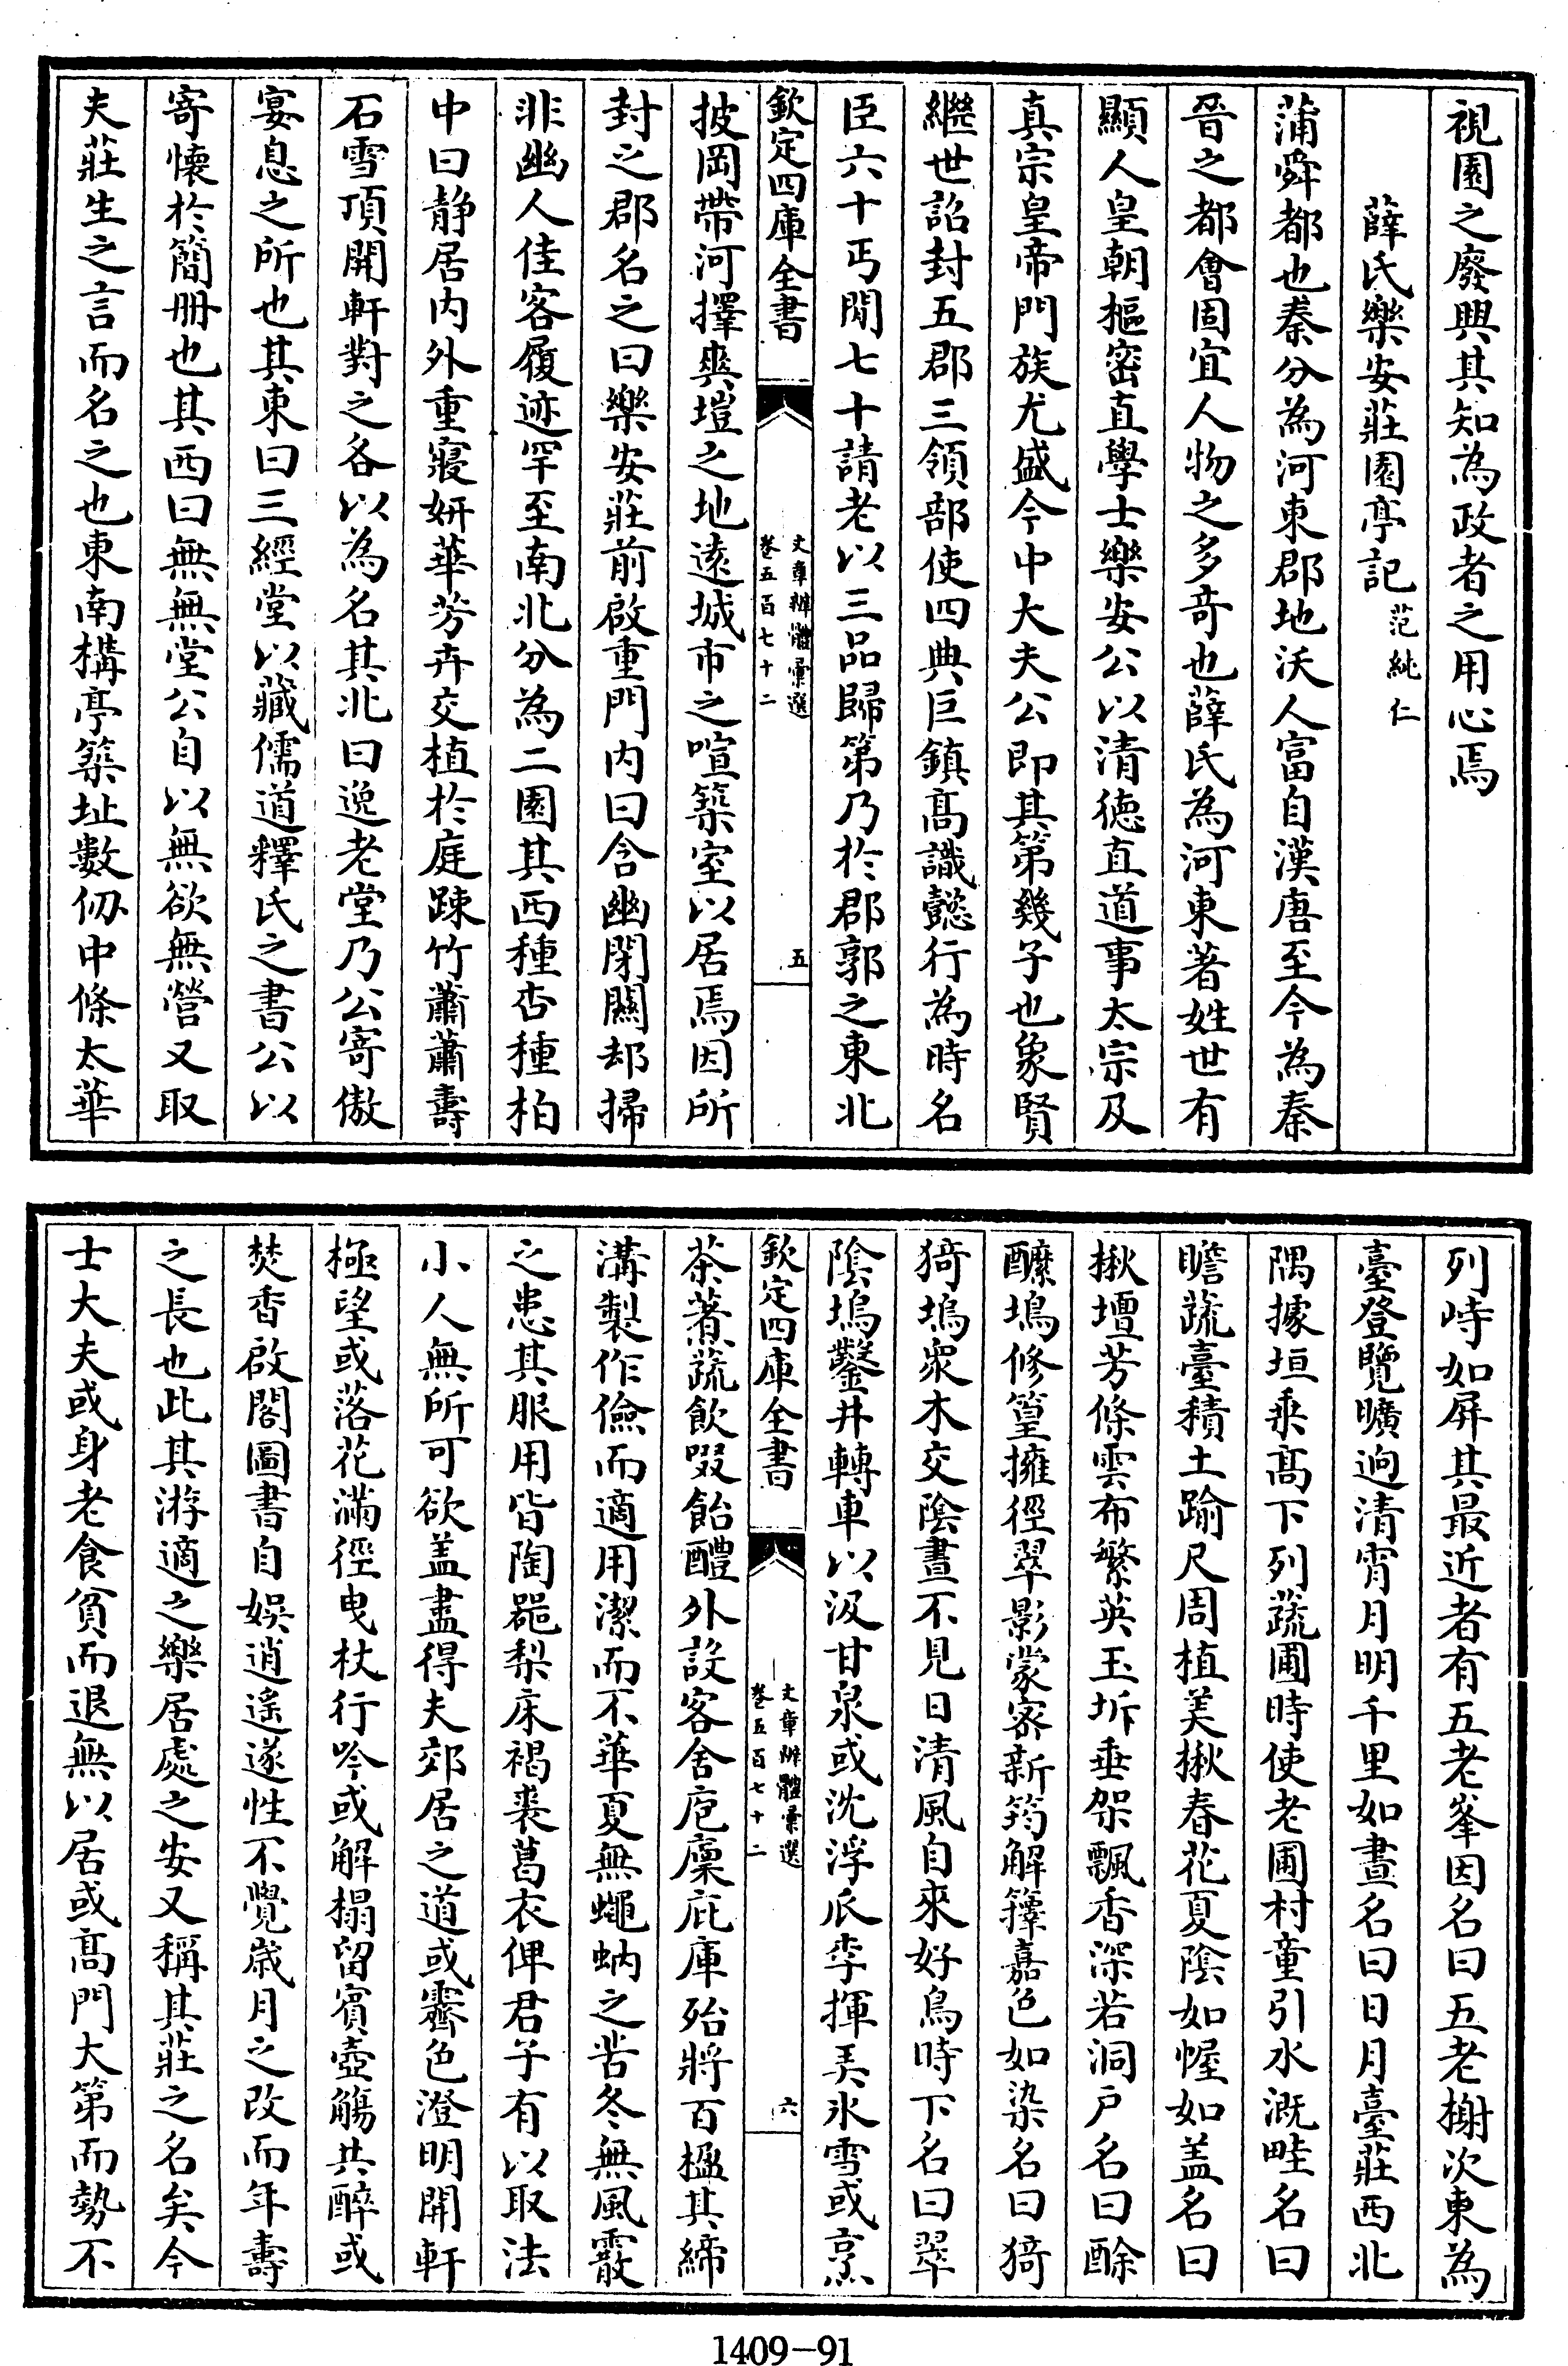 視園之廢興其知為政者之用心焉
薛氏樂安莊園亭記范純仁
蒲舜都也秦分為河東郡地沃人富自漢唐至今為秦
晉之都會固宜人物之多奇也薛氏為河東著姓世有
顯人皇朝樞密直學士樂安公以清徳直道事太宗及
真宗皇帝門族尤盛今中大夫公即其第幾子也象賢
繼世詔封五郡三領部使四典巨鎮髙識懿行為時名
臣六十丐閒七十請老以三品歸第乃於郡郭之東北
欽定四庫全書
文章辨體彙選
卷五百七十二
五
披岡帶河擇爽塏之地逺城市之喧築室以居焉因所
封之郡名之曰樂安莊前啟重門内曰含幽閉關却掃
非幽人佳客履迹罕至南北分為二園其西種杏種柏
中曰静居内外重寢妍華芳卉交植於庭踈竹蕭蕭壽
石雪頂開軒對之各以為名其北曰逸老堂乃公寄傲
宴息之所也其東曰三經堂以藏儒道釋氏之書公以
寄懷於簡册也其西曰無無堂公自以無欲無營又取
夫莊生之言而名之也東南構亭築址數仭中條太華
列峙如屏其最近者有五老峯因名曰五老榭次東為
臺登覽曠逈清宵月明千里如晝名曰日月臺莊西北
隅據垣乗髙下列蔬圃時使老圃村童引水溉畦名曰
瞻蔬臺積土踰尺周植美楸春花夏陰如幄如盖名曰
楸壇芳條雲布繁英玉坼垂架飄香深若洞户名曰酴
醾塢修篁擁徑翠影蒙宻新筠解籜嘉色如染名曰猗
猗塢衆木交陰晝不見日清風自來好鳥時下名曰翠
陰塢鑿井轉車以汲甘泉或沈浮瓜李揮弄氷雪或烹
欽定四庫全書
文章辨體彙選
卷五百七十二
六
茶煮蔬飲啜飴醴外設客舍庖廩庇庫殆將百楹其締
溝製作儉而適用潔而不華夏無蠅蚋之苦冬無風霰
之患其服用皆陶器梨床褐裘葛衣俾君子有以取法
小人無所可欲盖盡得夫郊居之道或霽色澄明開軒
極望或落花滿徑曳杖行吟或解榻留賓壺觴共醉或
焚香啟閣圖書自娛逍遥遂性不覺歳月之改而年壽
之長也此其游適之樂居處之安又稱其莊之名矣今
士大夫或身老食貧而退無以居或髙門大第而勢不
1409-91